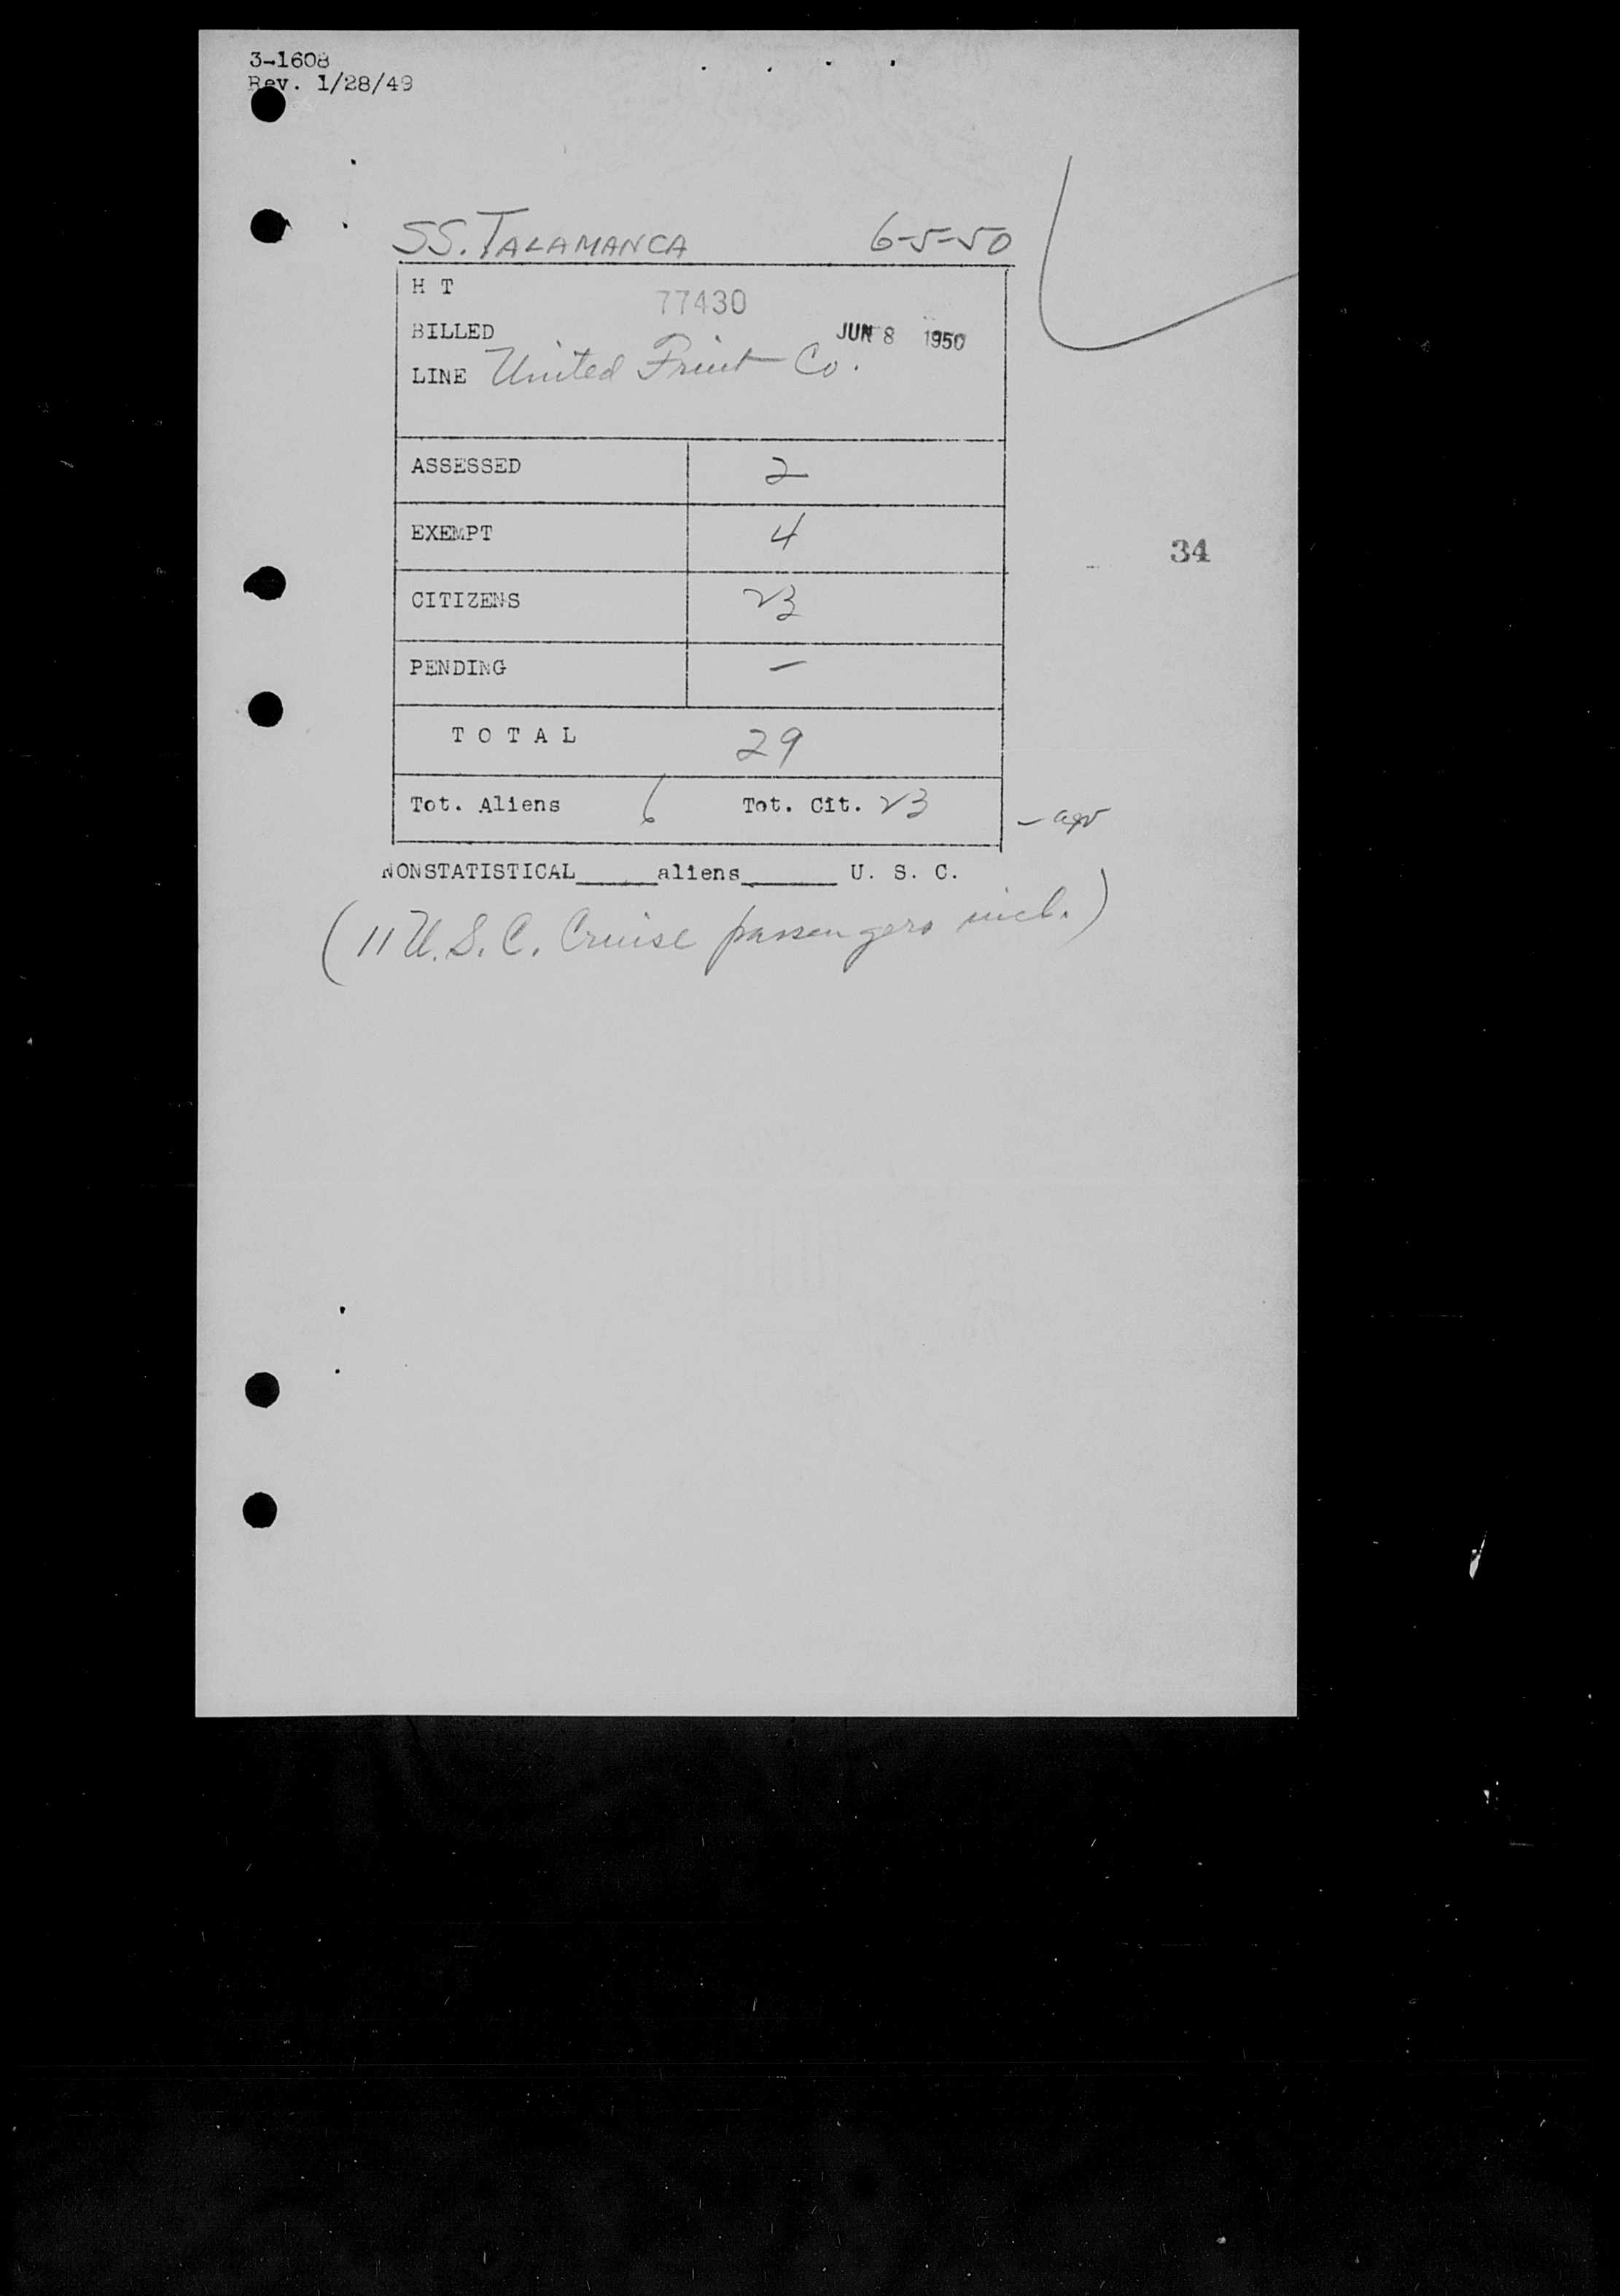 3-1608
Rev. 1/28/49
SS. TALAMANCA 6-5-50
H T
77430
BILLED JUN 8 1950
LINE United Fruit Co.
ASSESSED 2
EXEMPT 4
34
CITIZENS 23
PENDING –
T O T A L 29
Tot. Aliens 6 Tot. Cit. 23
NONSTATISTICAL_____aliens______ U. S. C.
(11 U.S.C. Cruise passengers incl.)